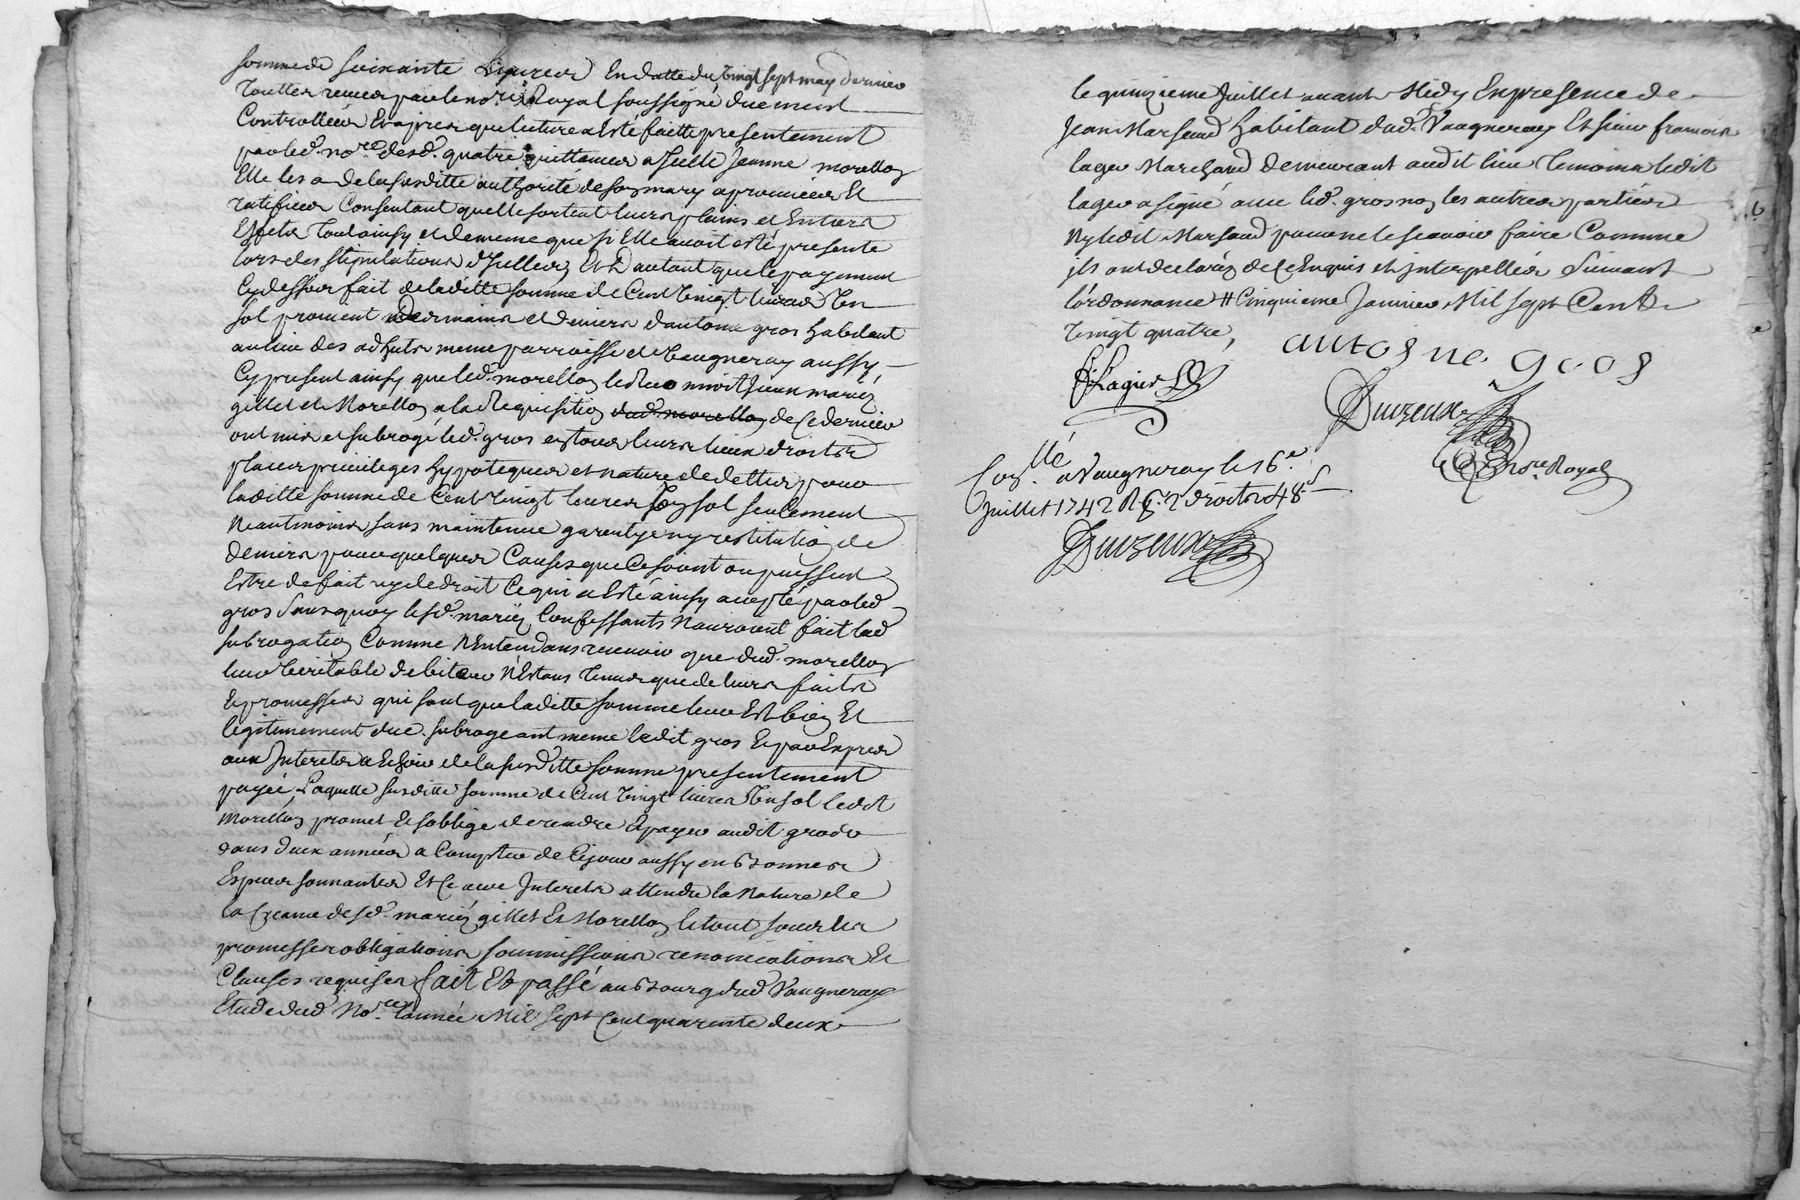 somme de soixante livres en datte du vingt sept may dernier
touttes reçues par le no.re Royal soussigné duement
Controllées Et apres que lecture a Esté faitte presentement
par led. no.re desd. quatre quittances a jcelle Jeanne morellon
Elle les a de la susditte authorité de son mary aprouvées Et
ratifiées Consentant quelle sortent leurs plains et Entiers
Effets tout ainsy et de meme que si Elle avoit esté presente
lors des stipulations d'Jcelles, Et D'autant que le payement
Cy dessus fait de laditte somme de Cent vingt livres un
sol provient des mains et deniers d'antoine gros habitant
au lieu des adhuts meme parroisse de vaugneray aussy
Cy present ainsy que led. morellon lesd. mariéz
gillet et Morellon a la Requisition dud. morellon de Ce dernier
ont mis et subrogé led. gros en tous leurs lieux droits
places privileges hypoteques et nature de dettes pour
laditte somme de Cent vingt livres un sol seulement
Neantmoins sans maintenue garentye ny restitution de
deniers pour quelques Causes que Ce soient ou puissent
Estre de fait ny de droit Ce qui a Esté ainsy accepté par led.
gros Sans quoy lesd. mariéz Confessants N'auroient fait lad.
subrogation Comme N'Entendans recevoir que dud. morellon
leur veritable debiteur N'Estans tenus que de leurs faits
Et promesses qui sont que laditte somme leur Est bien Et
legitimement due. subrogeant meme ledit gros Et par Exprés
aux Interets a Echoir de la susditte somme presentement
payée, Laquelle susditte somme de Cent vingt livres un sol ledit
Morellon promet Et s'oblige de rendre Et payer audit gros
dans deux années a Compter de Ce jour aussy en bonnes
Especes sonnantes Et Ce avec Interets attendu la Nature de
la Creance desd. mariéz gillet Et Morellon, le tout sous les
promesses obligations soumissions renonciations Et
Clauses requises fait Et passé au Bourg dud. Vaugneray
Etude dud. No.re l'année Mil sept Cent quarente deux
le quinzieme Juillet avant Midy En presence de
Jean Marsaud habitant dud. Vaugneray Et sieur francois
lager Marchand demeurant audit lieu temoins ledit
lager a signé avec led. gros non les autres parties
Ny ledit Marsaud pour ne le scavoir faire Comme
jls ont declaréz de Ce Enquis et jnterpelléz Suivant
l'ordonnance # Cinquieme Janvier Mil sept Cent
vingt quatre,
antoine gros
Lagier
Duizeux
no.re Royal
Con.llé a Vaugneray le 16.e
Juillet 1742 R. droits 48 s
Duizeux